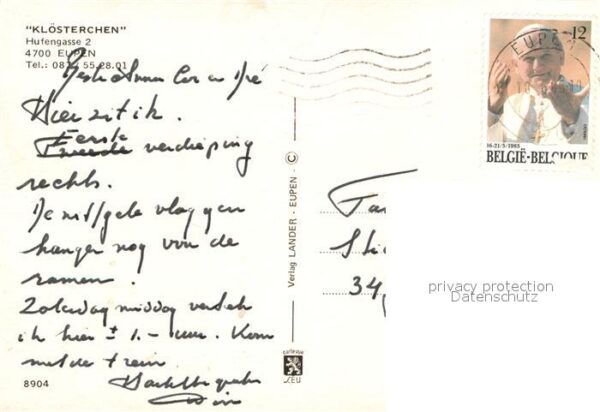 "KLÖSTERCHEN"
Hufengasse 2
4700 EUPEN
Tel.: 087/55.28.01
Beste Cor en
Hier zit ik.
Eerste
Tweede verdieping
rechts.
De wit/gele vlaggen
hangen nog van de
ramen.
Zaterdag middag vertrek
ik hier ± 1.- uur. Kom
met de trein.
Hartelijke groeten
Wim
8904
Verlag LANDER - EUPEN - ©
CEU
EUPEN
12
16-21/5/1985
BELGIË-BELGIQUE
Fa
Sti
34
privacy protection
Datenschutz